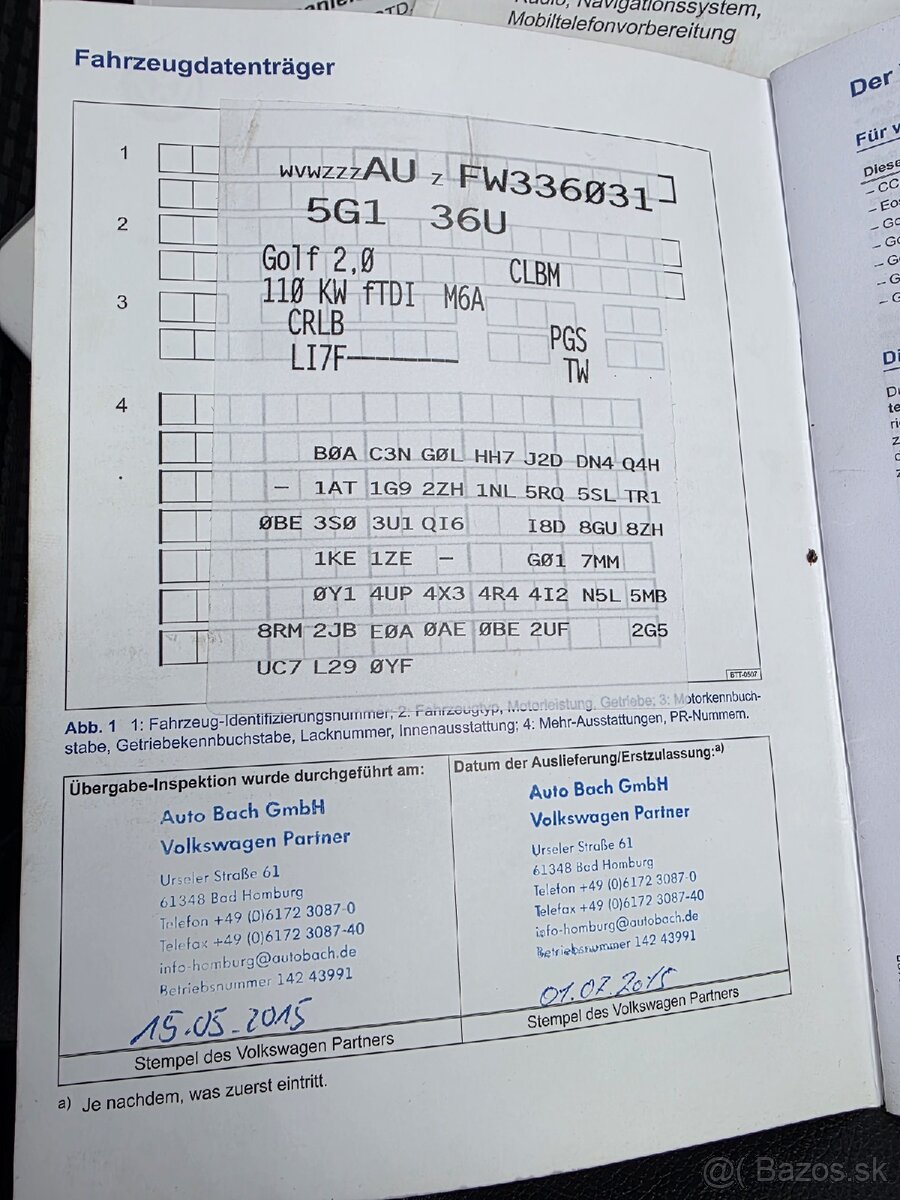 Radio, Navigationssystem,
Mobiltelefonvorbereitung
Fahrzeugdatenträger
1
WVWZZZAU Z FW336Ø31
5G1 36U
2
Golf 2,Ø CLBM
11Ø KW fTDI M6A
3
CRLB PGS
LI7F TW
4
BØA C3N GØL HH7 J2D DN4 Q4H
– 1AT 1G9 2ZH 1NL 5RQ 5SL TR1
ØBE 3SØ 3U1 QI6 I8D 8GU 8ZH
1KE 1ZE – GØ1 7MM
ØY1 4UP 4X3 4R4 4I2 N5L 5MB
8RM 2JB EØA ØAE ØBE 2UF 2G5
UC7 L29 ØYF
BTT-0507
Abb. 1 1: Fahrzeug-Identifizierungsnummer; 2: Fahrzeugtyp, Motorleistung, Getriebe; 3: Motorkennbuch-
stabe, Getriebekennbuchstabe, Lacknummer, Innenausstattung; 4: Mehr-Ausstattungen, PR-Nummern.
Übergabe-Inspektion wurde durchgeführt am:
Auto Bach GmbH
Volkswagen Partner
Urseler Straße 61
61348 Bad Homburg
Telefon +49 (0)6172 3087-0
Telefax +49 (0)6172 3087-40
info-homburg@autobach.de
Betriebsnummer 142 43991
15.05.2015
Stempel des Volkswagen Partners
Datum der Auslieferung/Erstzulassung:a)
Auto Bach GmbH
Volkswagen Partner
Urseler Straße 61
61348 Bad Homburg
Telefon +49 (0)6172 3087-0
Telefax +49 (0)6172 3087-40
info-homburg@autobach.de
Betriebsnummer 142 43991
01.07.2015
Stempel des Volkswagen Partners
a) Je nachdem, was zuerst eintritt.
Der
Für
Diese
– CC
– Eos
@( Bazos.sk